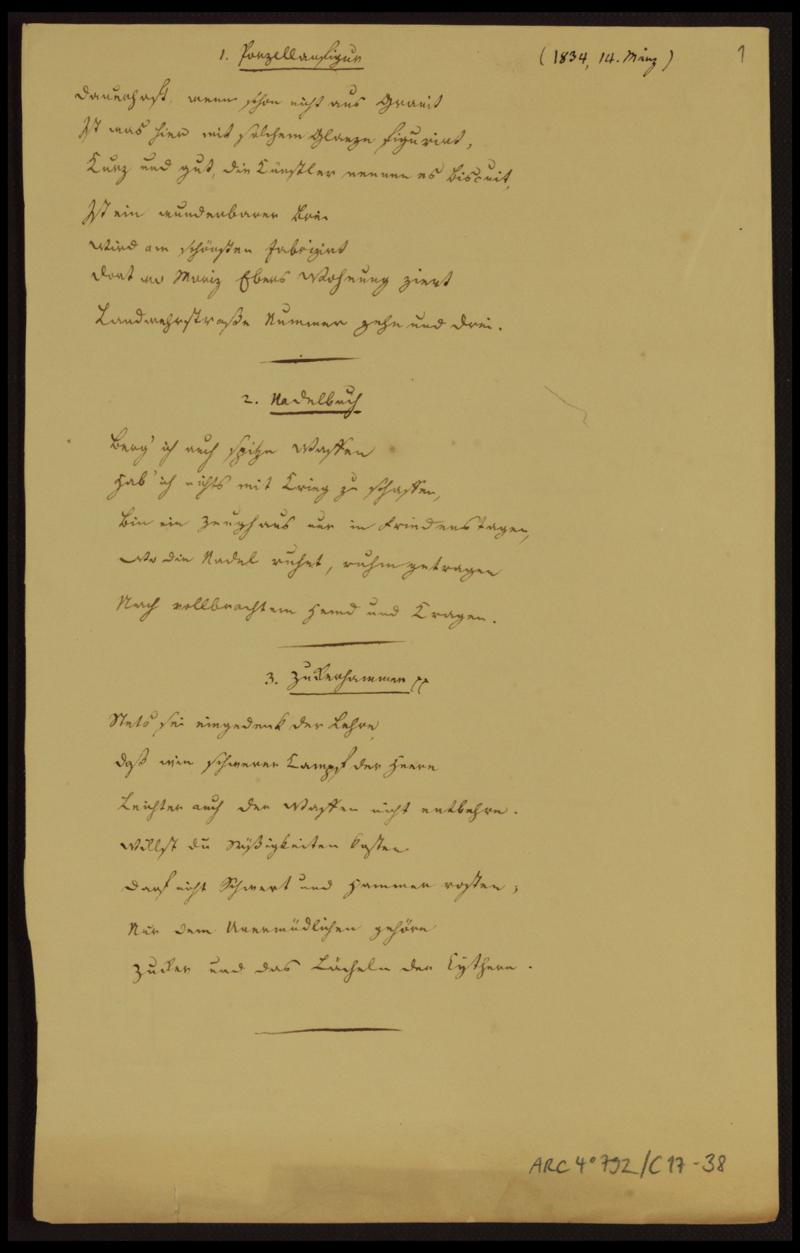 1. Porzellanfigur
(1834, 14. März)
1
Dauerhaft, wenn schon nicht aus Granit
Ist was hier mit solchem Glanze figurirt,
Kurz und gut, die Künstler nennen es Biscuit,
Ist ein wunderbarer Brei
Wird am schönsten fabrizirt
Dort wo Moriz Ebers Wohnung ziert
Landwehrstraße Nummer zehn und drei.
2. Nadelbuch
Berg' ich auch spitze Waffen
Hab' ich nichts mit Krieg zu schaffen,
Bin ein Zeughaus nur in Friedenstagen,
Wo die Nadel ruhet, ruhmgetragen
Nach vollbrachtem Hemd und Kragen.
3. Zuckerhammer
Stets sei eingedenk der Lehre
Daß wie schwerer Kampf der Heere
Leichter auch der Waffen nicht entbehre.
Willst du Süßigkeiten kosten
Darf nicht Schwert und Hammer rosten;
Nur dem Unermüdlichen gehöre
Zucker und das Lächeln der Cythere.
ARC 4° 792/C17-38